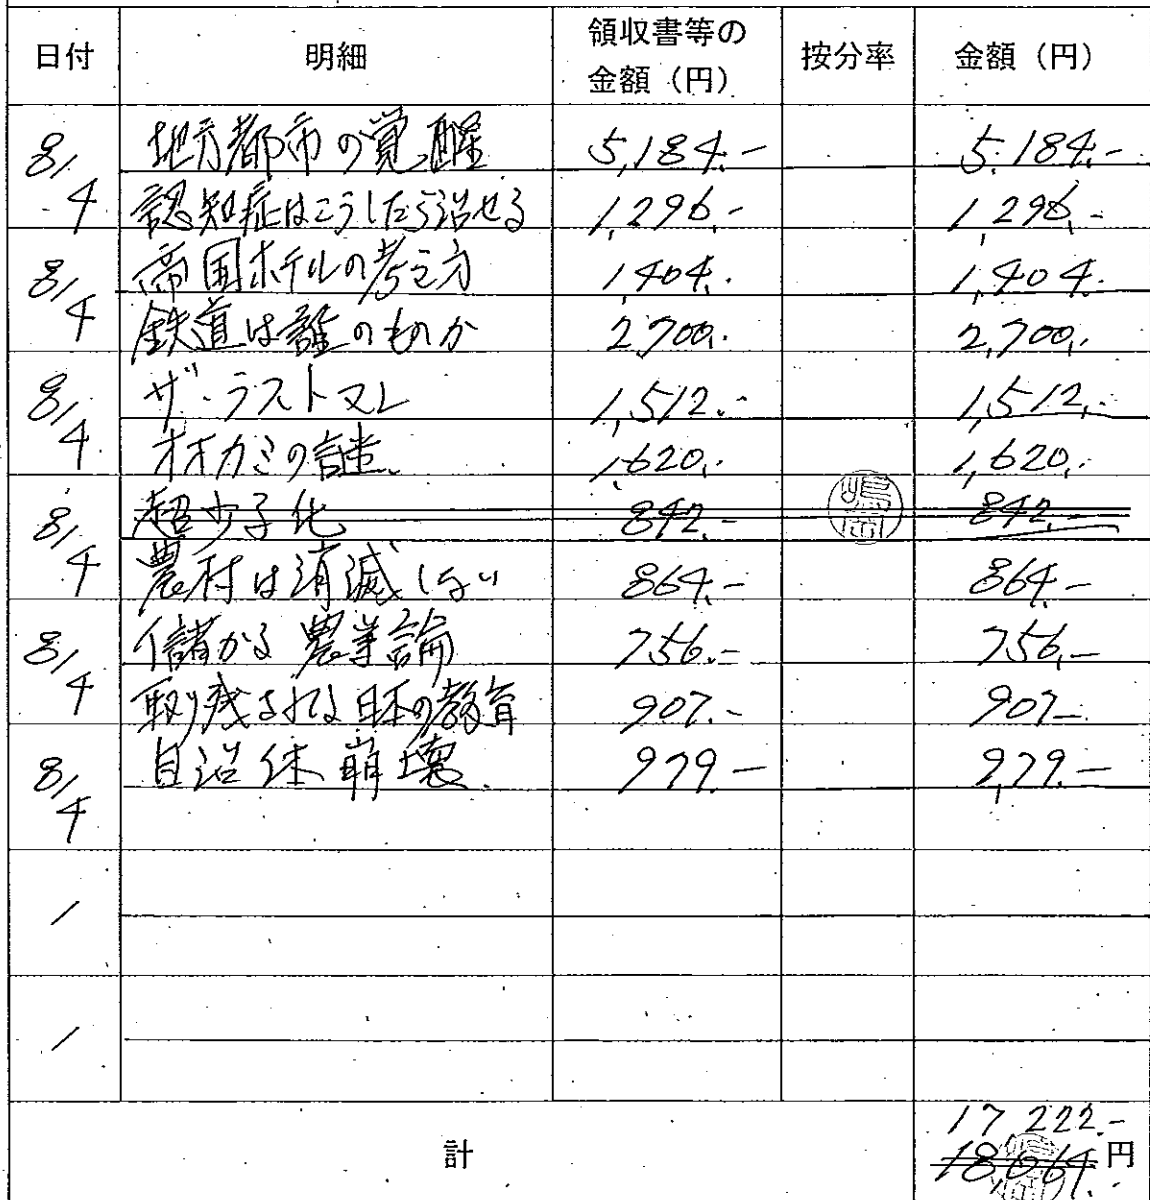 日付 明細 領収書等の金額（円） 按分率 金額（円）
8/4 地方都市の覚醒 5,184.- 5,184.-
認知症はこうしたら治せる 1,296.- 1,296.-
8/4 帝国ホテルの考え方 1,404.- 1,404.-
鉄道は誰のものか 2,700.- 2,700.-
8/4 ザ・ラストマン 1,512.- 1,512.-
オオカミの 1,620.- 1,620.-
8/4 超少子化 842.- 842.-
農村は消滅しない 864.- 864.-
8/4 儲かる農業論 756.- 756.-
取り残される日本の教育 907.- 907.-
8/4 自治体崩壊 979.- 979.-
/
/
計 17,222.-
18,064.- 円